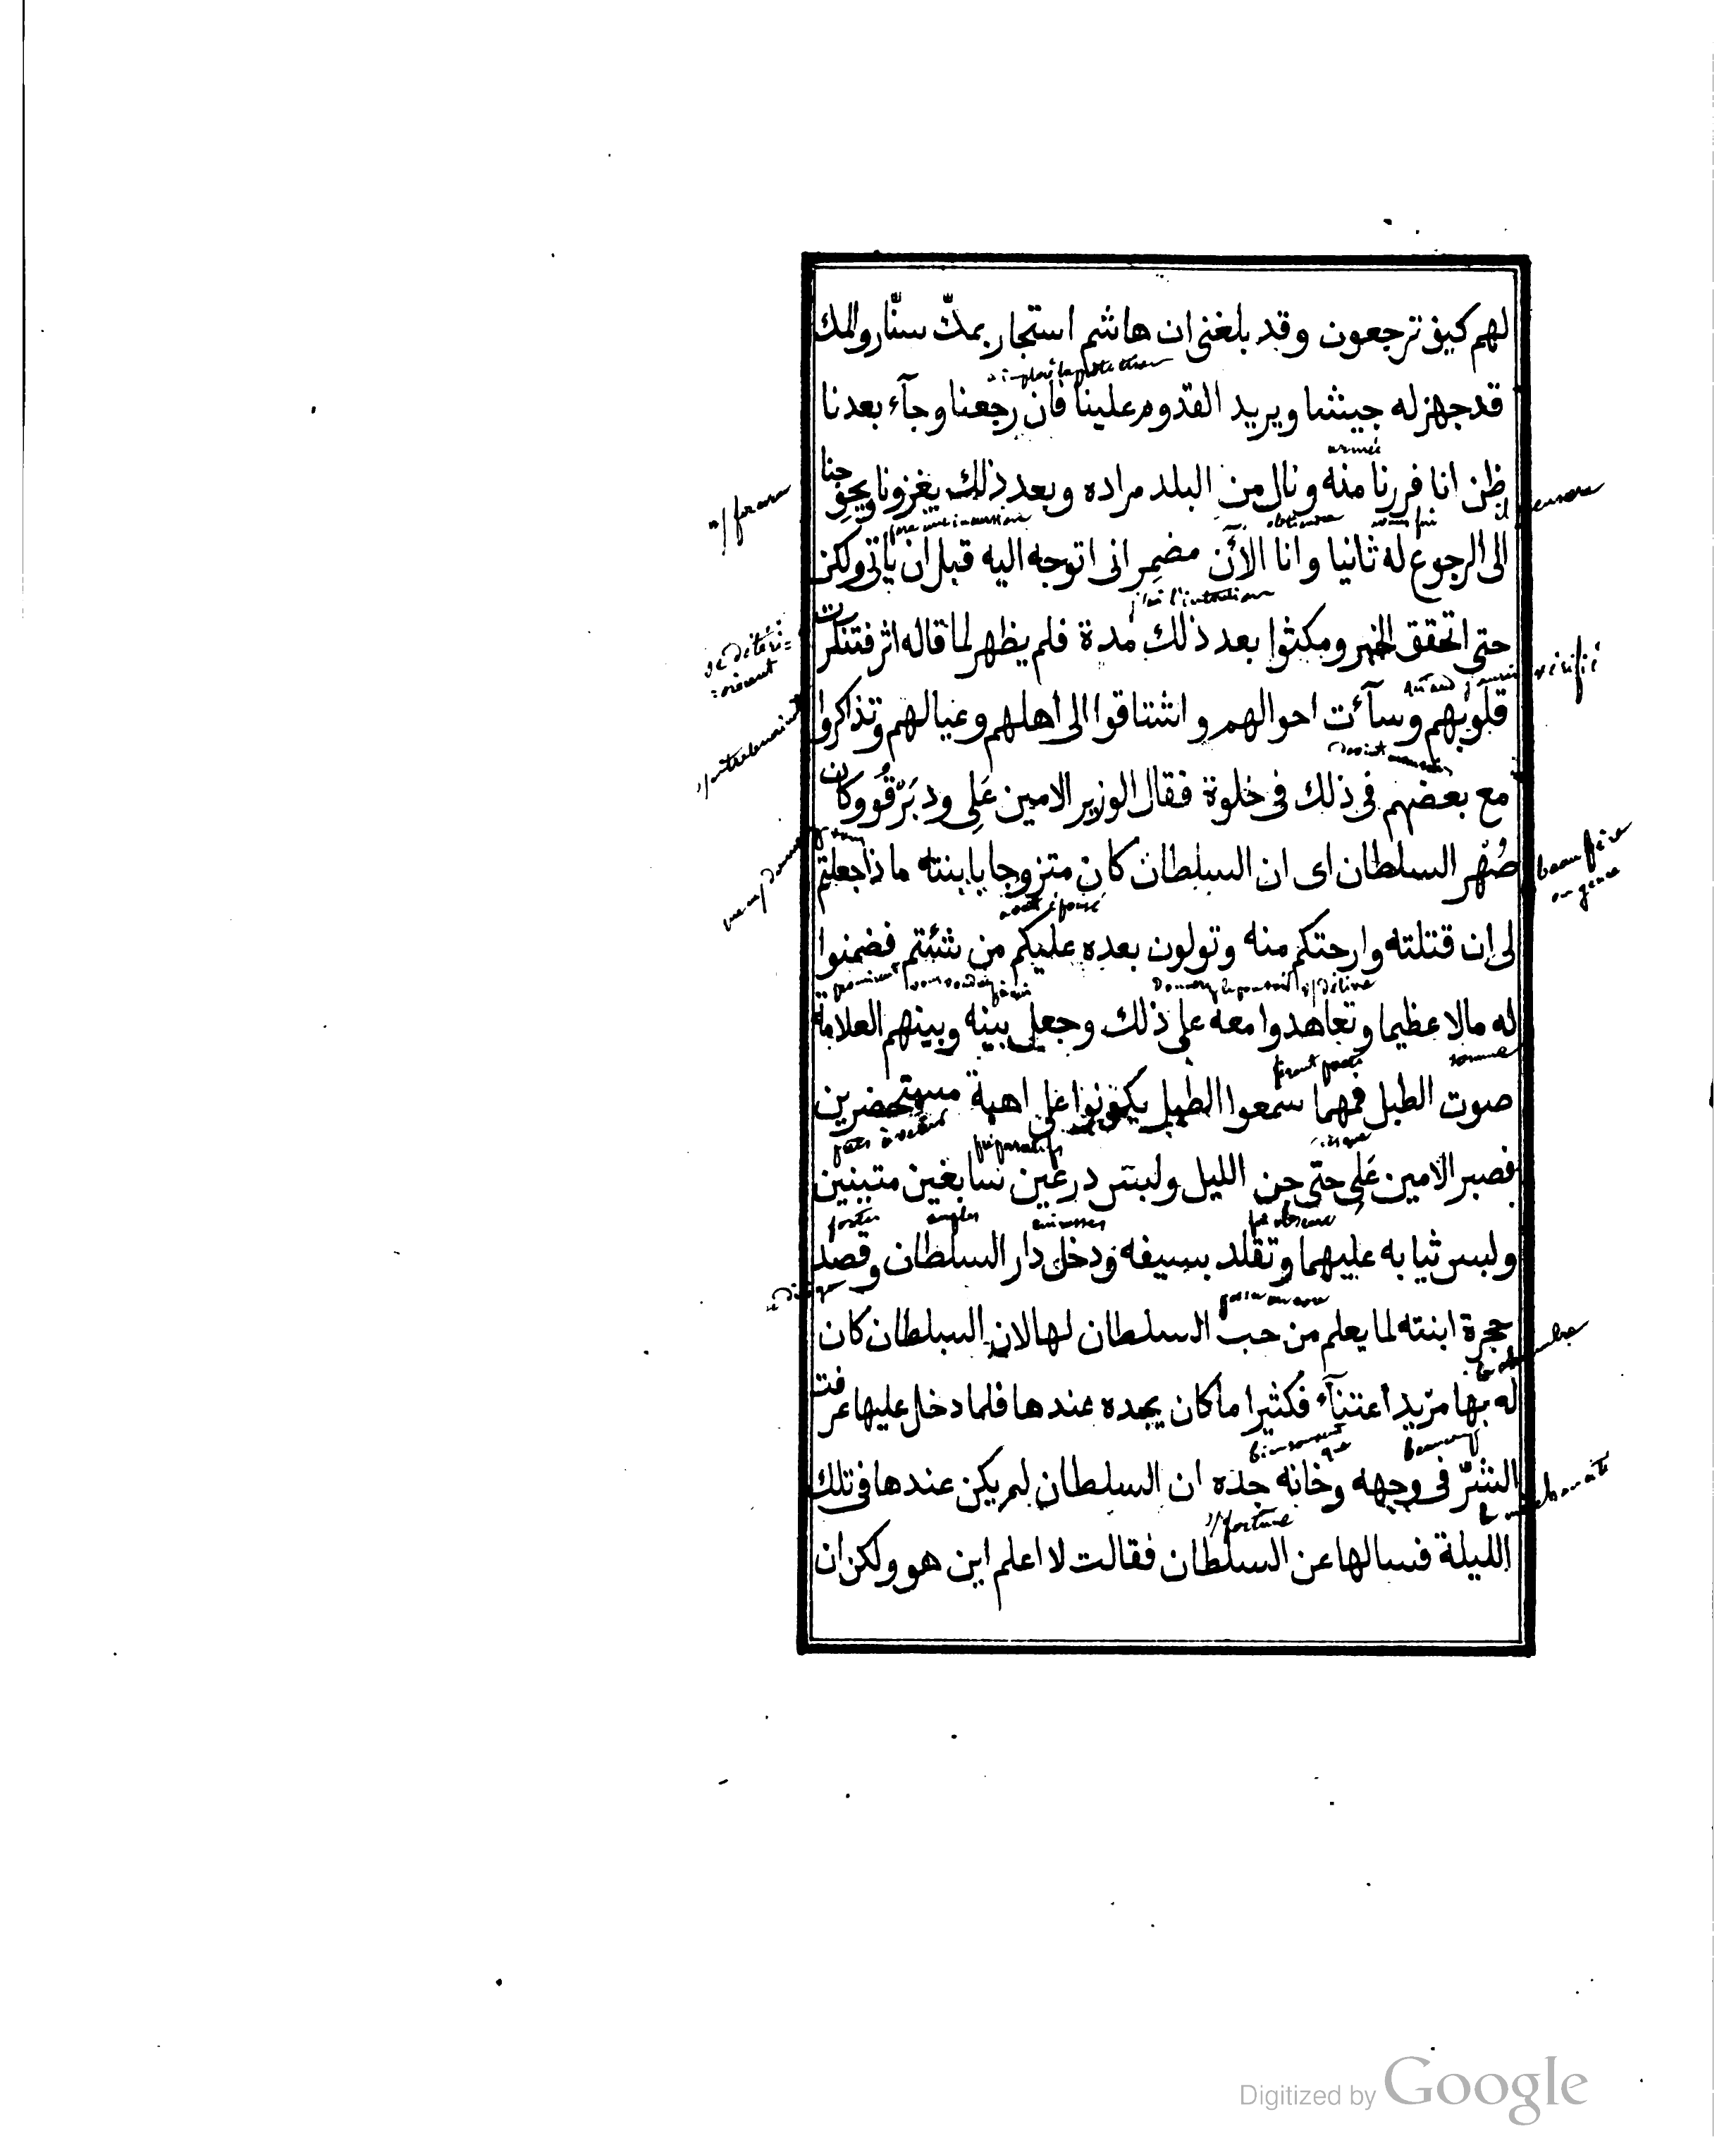 لهم كيف ترجعون وقد بلغنى ان هاشم استجار بمكّ سنّار والمك
قد جهز له جيشا ويريد القدوم علينا فان رجعنا وجآء بعدنا
ظن انا فررنا منه ونال من البلد مراده وبعد ذلك يغزونا ويحوجنا
الى الرجوع له ثانيا وانا الآن مضمر انى اتوجه اليه قبل ان ياتى ولكن
حتى اتحقق الخبر ومكثوا بعد ذلك مدة فلم يظهر لما قاله اثر فتنكرت
قلوبهم وسآءت احوالهم واشتاقوا الى اهلهم وعيالهم وتذاكروا
مع بعضهم فى ذلك فى خلوة فقال الوزير الامين عَلِى ود بَرْقُو وكان
صُهْر السلطان اى ان السلطان كان متزوجا بابنته ما ذا جعلتم
لى ان قتلته وارحتكم منه وتولون بعده عليكم من شئتم فضمنوا
له مالا عظيما وتعاهدوا معه على ذلك وجعل بينه وبينهم العلامة
صوت الطبل فمهما سمعوا الطبل يكونوا على اهبة مستحضرين
فصبر الامين عَلى حتى جن الليل ولبس درعين سابغين متينين
ولبس ثيابه عليهما وتقلد بسيفه ودخل دار السلطان وقصد
حجرة ابنته لما يعلم من حب السلطان لها لان السلطان كان
له بها مزيد اعتنآء فكثيرا ما كان يجده عندها فلما دخل عليها عرفت
الشرّ فى وجهه وخانه جده ان السلطان لم يكن عندها فى تلك
الليلة فسالها عن السلطان فقالت لا اعلم اين هو ولكن ان
armée
j'ai l'intention
beau père
ou gendre
préparatifs
cuirasses
amples
Digitized by Google